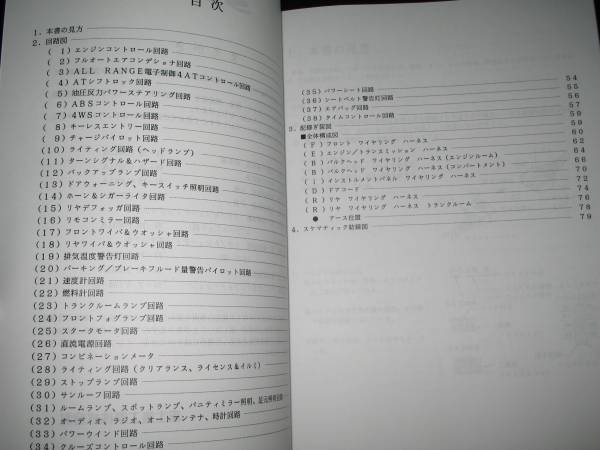 目次
1. 本書の見方
2. 回路図
(1) エンジンコントロール回路
(2) フルオートエアコンデショナ回路
(3) ALL RANGE電子制御4ATコントロール回路
(4) ATシフトロック回路
(5) 油圧反力パワーステアリング回路
(6) ABSコントロール回路
(7) 4WSコントロール回路
(8) キーレスエントリー回路
(9) チャージパイロット回路
(10) ライティング回路 (ヘッドランプ)
(11) ターンシグナル&ハザード回路
(12) バックアップランプ回路
(13) ドアウォーニング、キースイッチ照明回路
(14) ホーン&シガーライタ回路
(15) リヤデフォッガ回路
(16) リモコンミラー回路
(17) フロントワイパ&ウオッシャ回路
(18) リヤワイパ&ウオッシャ回路
(19) 排気温度警告灯回路
(20) パーキング/ブレーキフルード量警告パイロット回路
(21) 速度計回路
(22) 燃料計回路
(23) トランクルームランプ回路
(24) フロントフォグランプ回路
(25) スタータモータ回路
(26) 直流電源回路
(27) コンビネーションメータ
(28) ライティング回路 (クリアランス、ライセンス&イルミ)
(29) ストップランプ回路
(30) サンルーフ回路
(31) ルームランプ、スポットランプ、バニティミラー照明、足元照明回路
(32) オーディオ、ラジオ、オートアンテナ、時計回路
(33) パワーウインド回路
(34) クルーズコントロール回路
(35) パワーシート回路 54
(36) シートベルト警告灯回路 56
(37) エアバッグ回路 57
(38) タイムコントロール回路 58
3. 配線き装図 59
■全体構成図 60
(F) フロント ワイヤリング ハーネス 62
(E) エンジン/トランスミッション ハーネス 64
(B) バルクヘッド ワイヤリング ハーネス (エンジンルーム) 66
(B) バルクヘッド ワイヤリング ハーネス (コンパートメント) 68
(I) インストルメントパネル ワイヤリング ハーネス 70
(D) ドアコード 72
(R) リヤ ワイヤリング ハーネス 74
(R) リヤ ワイヤリング ハーネス トランクルーム 76
● アース位置 78
4. スケマティック結線図 79